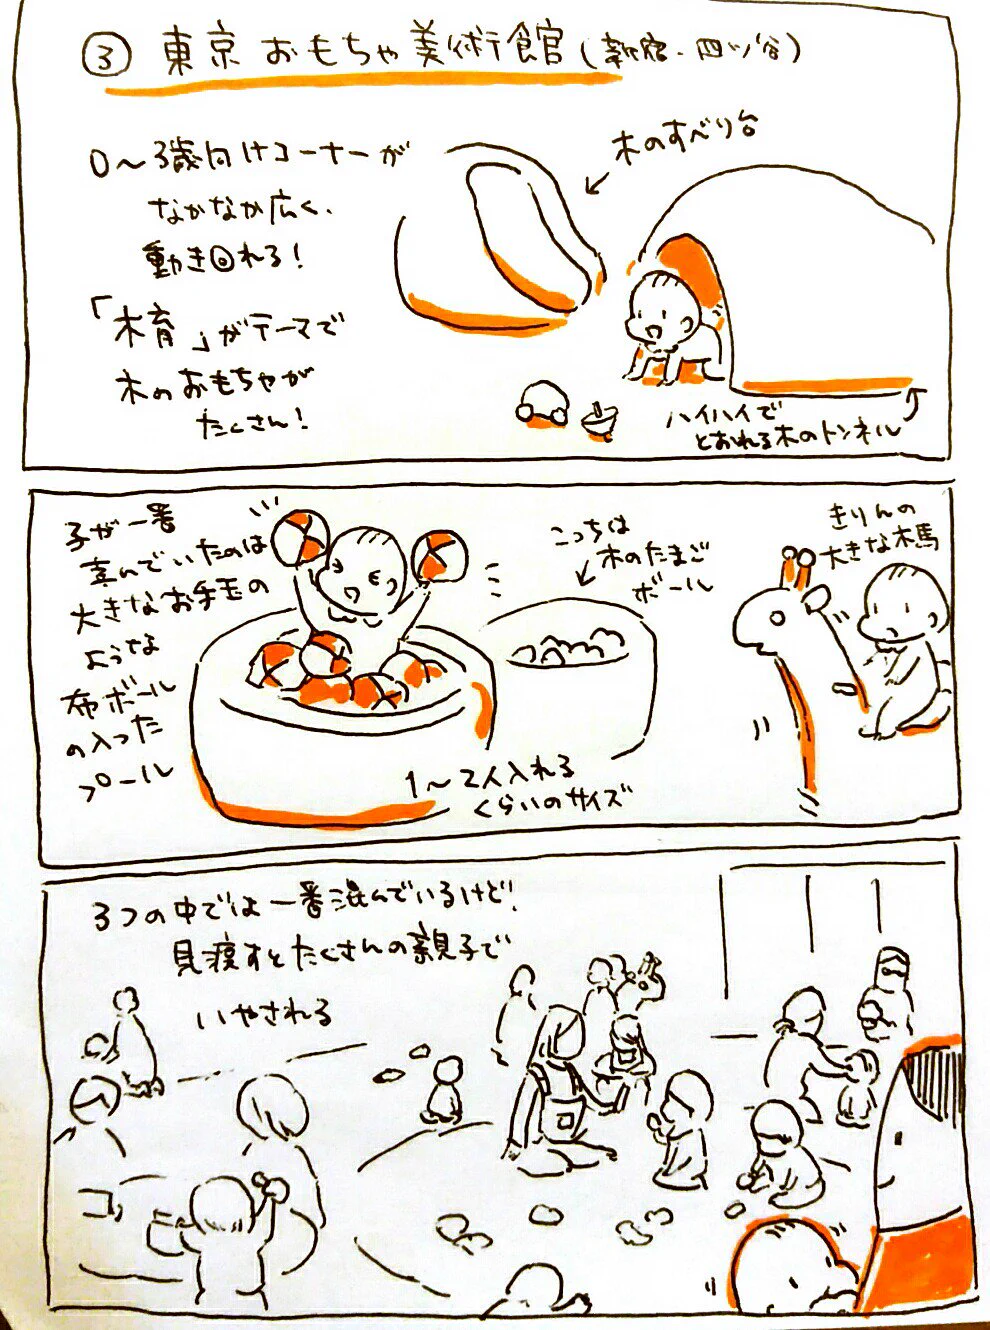 ③ 東京おもちゃ美術館(新宿・四ツ谷)
0〜3歳向けコーナーが
なかなか広く、
動き回れる!
「木育」がテーマで
木のおもちゃが
たくさん!
木のすべり台
ハイハイで
とおれる木のトンネル
子が一番
喜んでいたのは
大きなお手玉の
ような
布ボール
の入った
プール
1〜2人入れる
くらいのサイズ
こっちは
木のたまご
ボール
きりんの
大きな木馬
3つの中では一番混んでいるけど!
見渡すとたくさんの親子で
いやされる